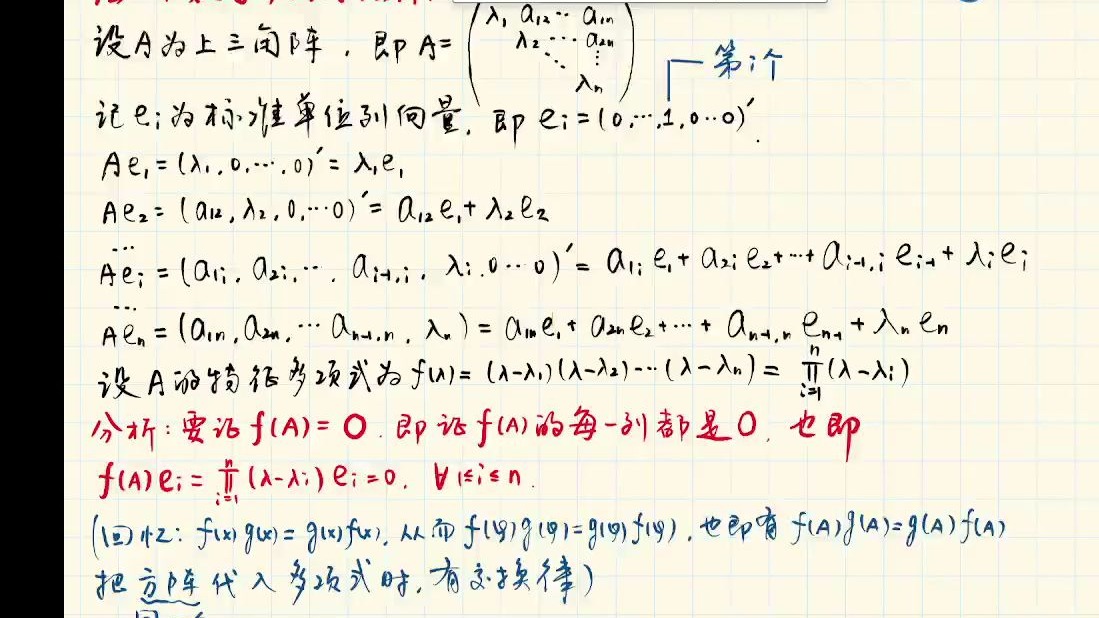 设A为上三角阵，即 A= (λ₁ a₁₂ … a₁ₙ
λ₂ … a₂ₙ
⋱ ⋮
λₙ)
第i个
记 eᵢ 为标准单位列向量，即 eᵢ = (0,…,1,0…0)′.
Ae₁ = (λ₁,0,…,0)′ = λ₁e₁
Ae₂ = (a₁₂, λ₂, 0,…0)′ = a₁₂e₁ + λ₂e₂
…
Aeᵢ = (a₁ᵢ, a₂ᵢ, …, aᵢ₋₁,ᵢ, λᵢ, 0…0)′ = a₁ᵢe₁ + a₂ᵢe₂ + … + aᵢ₋₁,ᵢ eᵢ₋₁ + λᵢeᵢ
…
Aeₙ = (a₁ₙ, a₂ₙ, … aₙ₋₁,ₙ, λₙ) = a₁ₙe₁ + a₂ₙe₂ + … + aₙ₋₁,ₙ eₙ₋₁ + λₙeₙ
设A的特征多项式为 f(λ) = (λ-λ₁)(λ-λ₂)…(λ-λₙ) = ∏ⁿᵢ₌₁(λ-λᵢ)
分析：要证 f(A) = 0，即证 f(A) 的每一列都是0，也即
f(A)eᵢ = ∏ⁿᵢ₌₁(λ-λᵢ)eᵢ = 0, ∀ 1≤i≤n.
(回忆：f(x)g(x) = g(x)f(x)，从而 f(φ)g(φ) = g(φ)f(φ)，也即有 f(A)g(A) = g(A)f(A)
把方阵代入多项式时，有交换律)